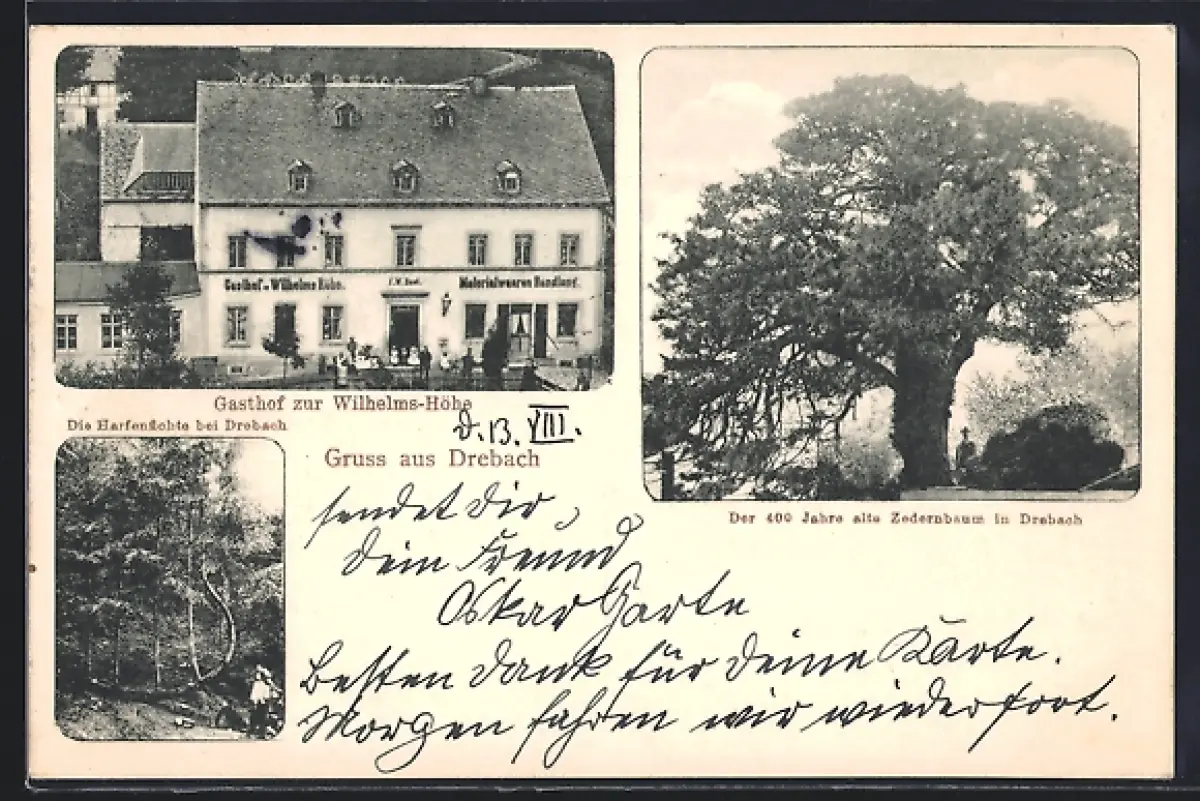 Gasthof z. Wilhelms Höhe.
Materialwaaren Handlung.
Gasthof zur Wilhelms-Höhe
Die Harfenfichte bei Drebach
d. 13. VIII.
Gruss aus Drebach
Der 400 Jahre alte Zedernbaum in Drebach
sendet Dir,
Dein Freund
Oskar Garte
Besten Dank für Deine Karte.
Morgen fahren wir wieder fort.